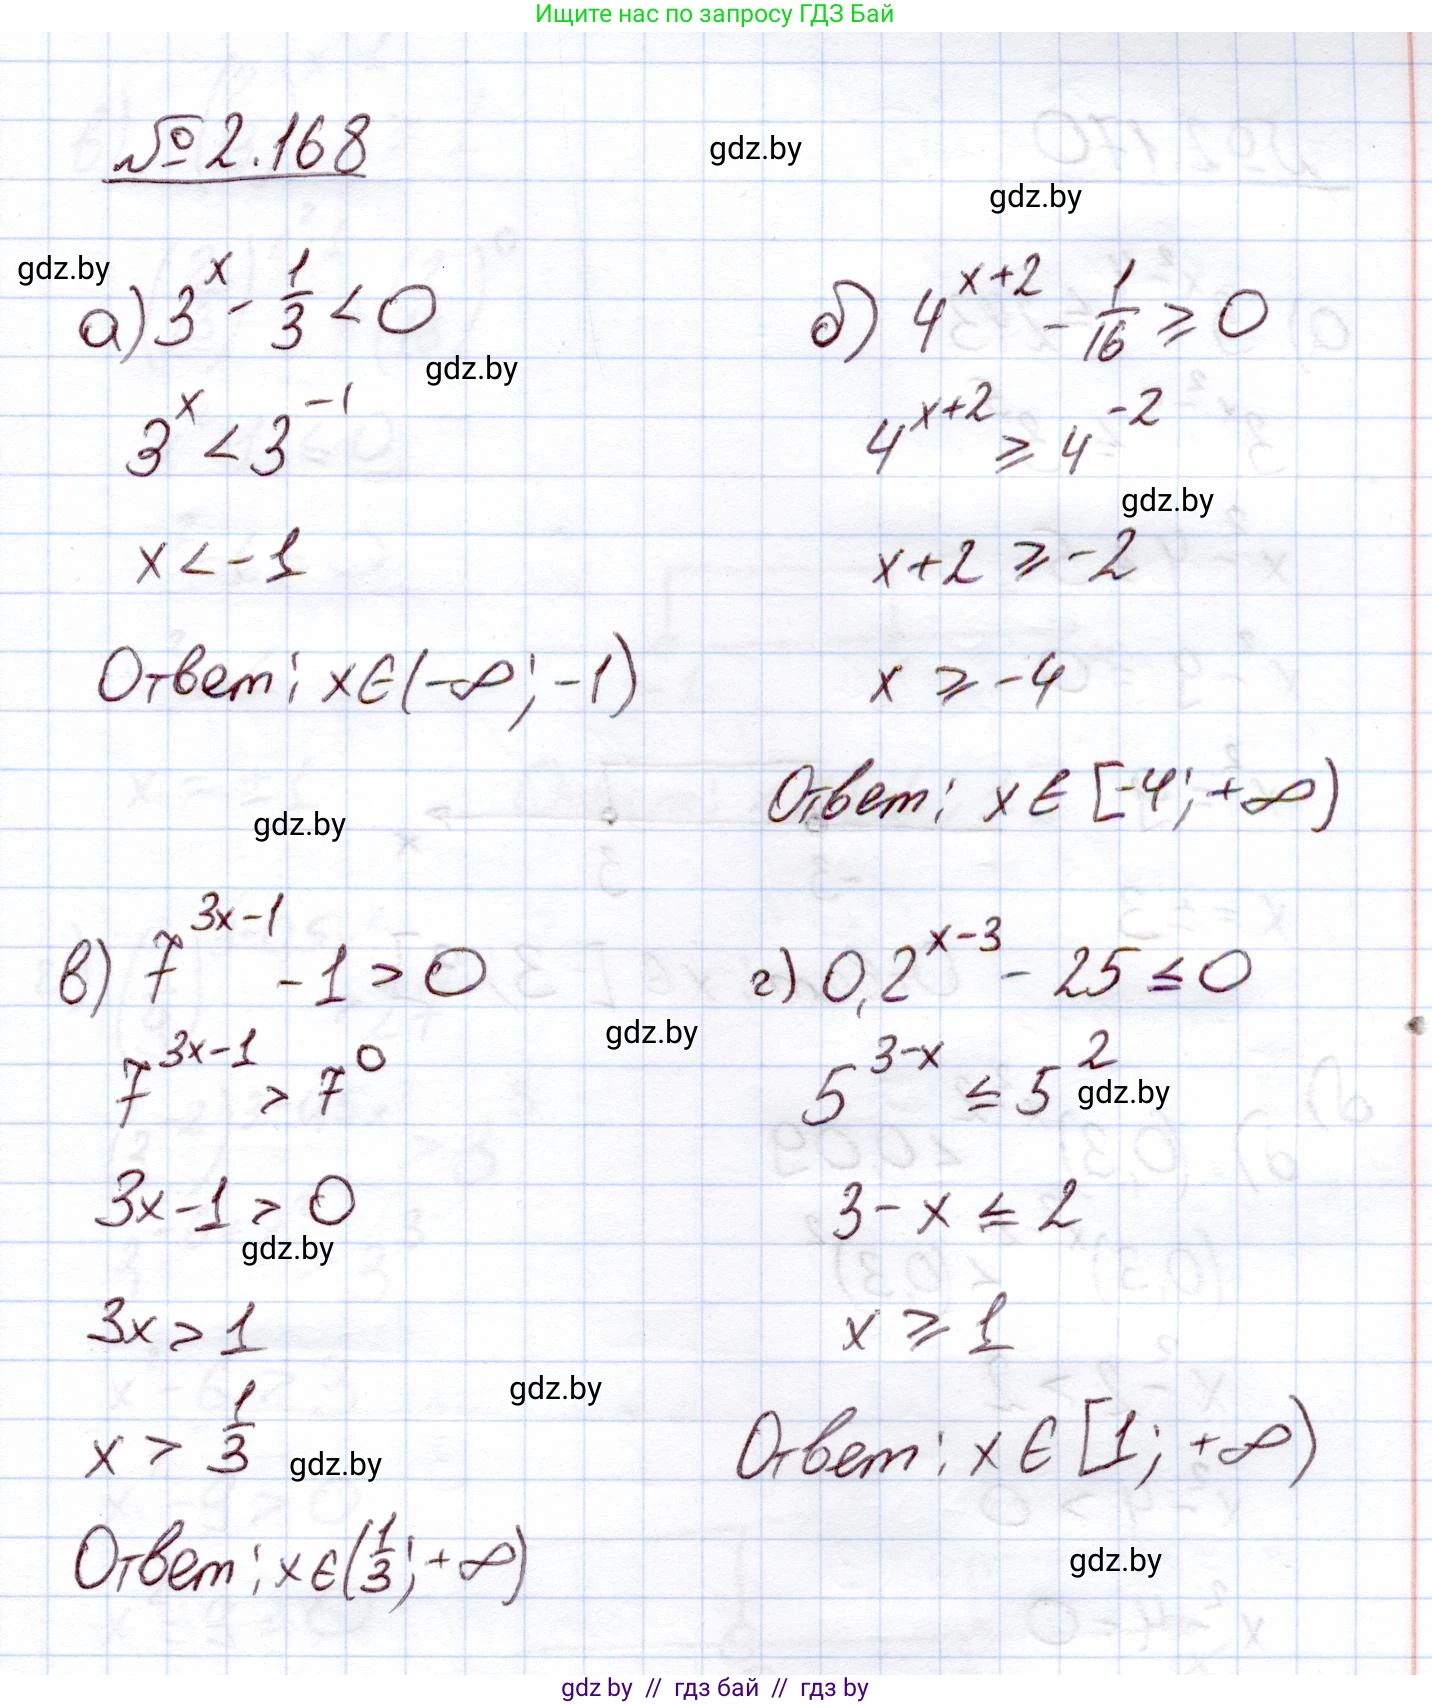 Ищите нас по запросу ГДЗ Бай
№ 2.168
gdz.by
gdz.by
gdz.by
а) 3^x - 1/3 < 0
gdz.by
3^x < 3^-1
x < -1
Ответ: x ∈ (-∞; -1)
б) 4^x+2 - 1/16 ⩾ 0
4^x+2 ⩾ 4^-2
gdz.by
x+2 ⩾ -2
x ⩾ -4
Ответ: x ∈ [-4; +∞)
gdz.by
в) 7^3x-1 - 1 > 0
gdz.by
7^3x-1 > 7^0
3x-1 > 0
gdz.by
3x > 1
gdz.by
x > 1/3
gdz.by
Ответ: x ∈ (1/3; +∞)
г) 0,2^x-3 - 25 ≤ 0
5^3-x ≤ 5^2
gdz.by
3-x ≤ 2
x ⩾ 1
Ответ: x ∈ [1; +∞)
gdz.by
gdz by // гдз бай // гдз by